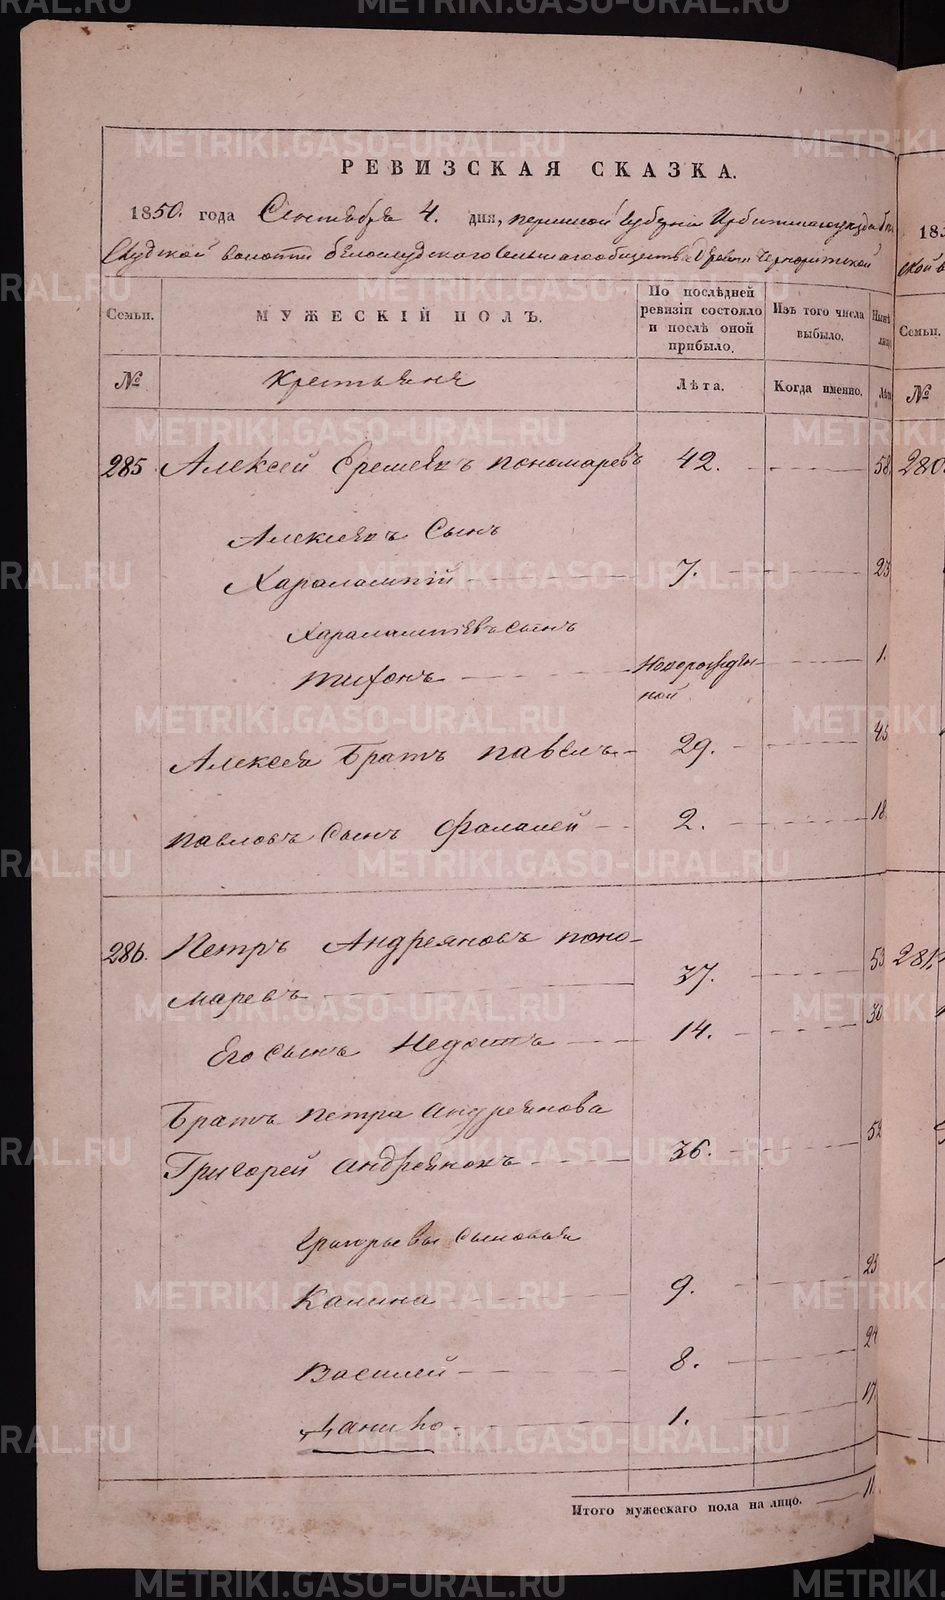 РЕВИЗСКАЯ СКАЗКА.
1850. года Сентября 4. дня, пермской губерніи Ирбитскаго уезда бело
слудской волости белослудскаго сельскаго общества деревни Черноритской
Семьи.
МУЖЕСКІЙ ПОЛЪ.
По послѣдней ревизіи состояло и послѣ оной прибыло.
Изъ того числа выбыло.
Нынѣ на лицо
№
Крестьяне
Лѣта.
Когда именно.
Лѣта
285 Алексей Еремеевъ пономаревъ 42. 58
Алексеевъ Сынъ
Харалампій 7. 23
Харалампіевъ сынъ
тихонъ Новорожден- 1.
ной
Алексея Братъ павелъ 29. 45
павловъ Сынъ Фалалей 2. 18
286. Петръ Андреяновъ поно-
маревъ 37. 53
Его Сынъ Федотъ 14. 30
Братъ петра андреянова
Григорей андреяновъ 36. 52
григорьевы сыновья
Калина 9. 25
Василей 8. 24
Данило 1. 17
Итого мужескаго пола на лицо. 11.
185
ской в
Семьи.
№
280.
281.
METRIKI.GASO-URAL.RU